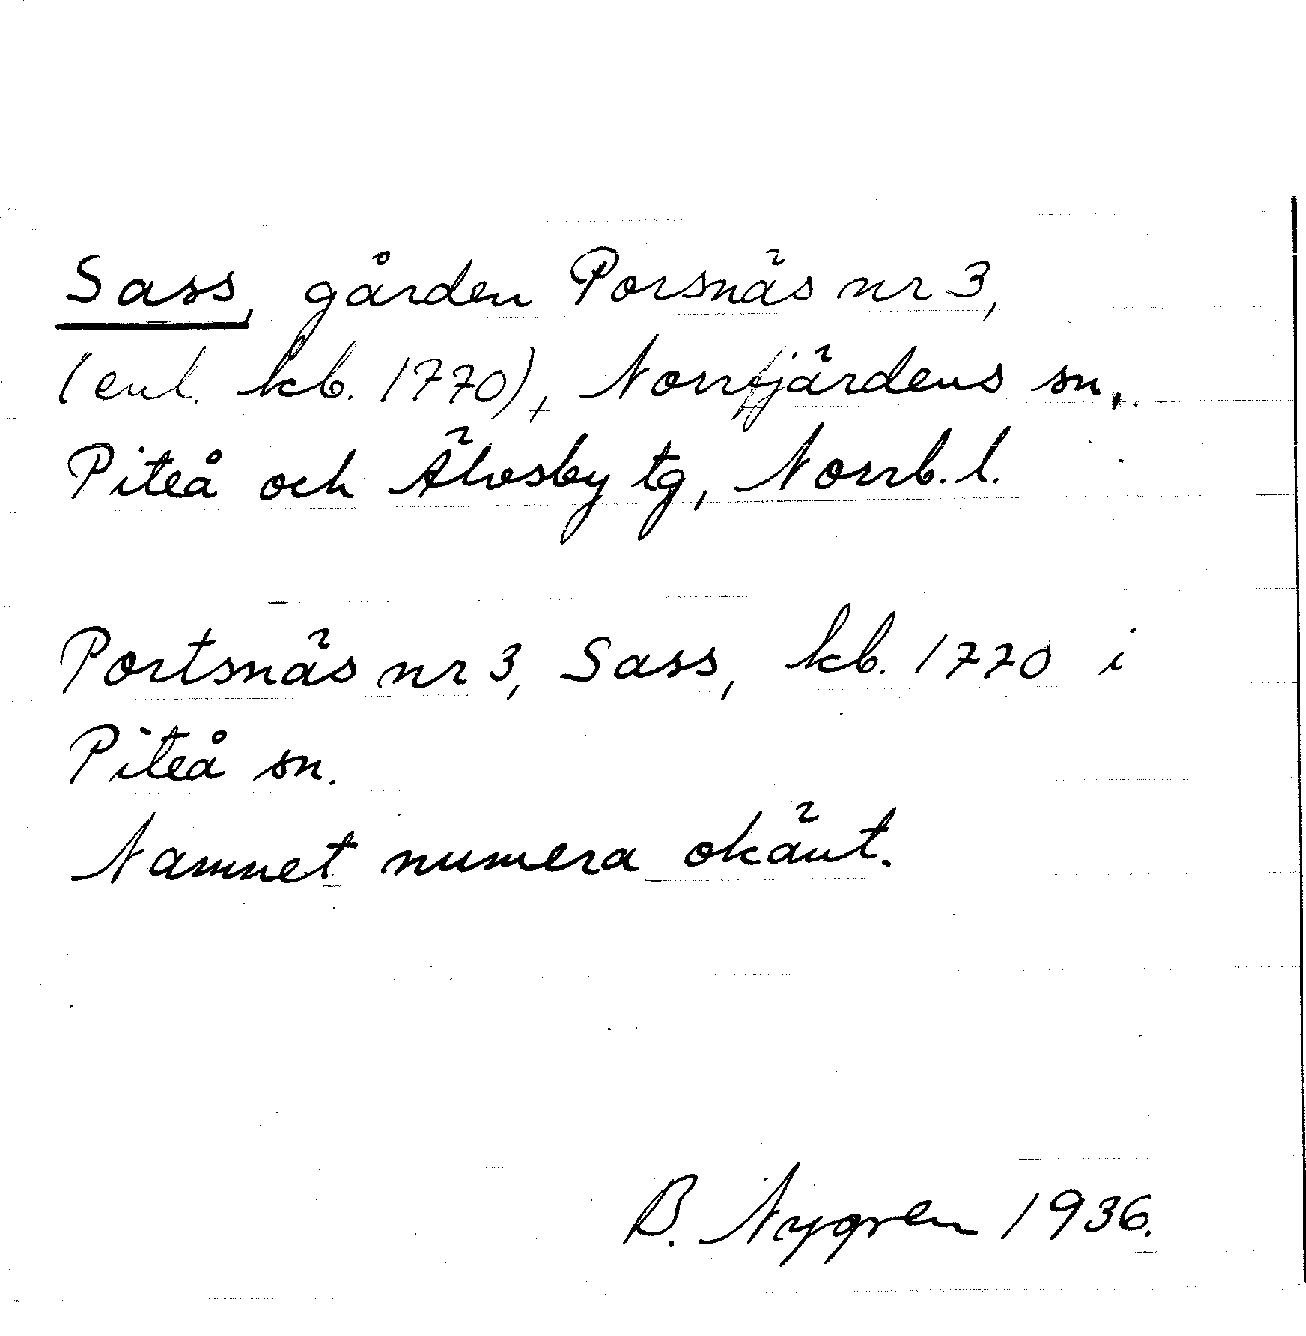 Sass, gården Porsnäs nr 3,
(enl. kb. 1770), Norrfjärdens sn,
Piteå och Älvsby tg, Norrb. l.
Portsnäs nr 3, Sass, kb. 1770 i
Piteå sn.
Namnet numera okänt.
B. Nygren 1936.